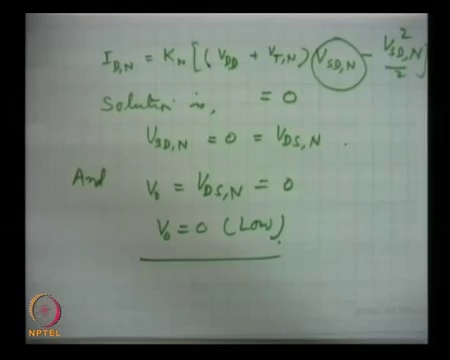 I_{D,N} = K_N [ ( V_{DD} + V_{T,N} ) V_{SD,N} - V_{SD,N}^2 / 2 ]
Solution is, = 0
V_{SD,N} = 0 = V_{DS,N} .
And V_0 = V_{DS,N} = 0
V_0 = 0 (Low) .
NPTEL